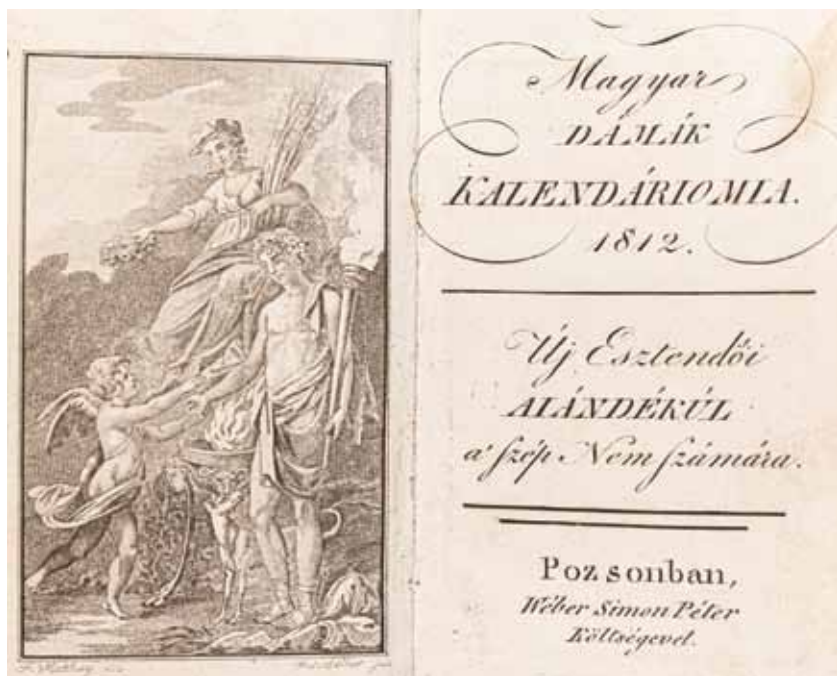 Magyar
DÁMÁK
KALENDÁRIOMIA.
1812.
Új Esztendői
AIÁNDÉKÚL
a' ſzép Nem ſzámára.
Pozsonban,
Wéber Simon Péter
Költségevel.